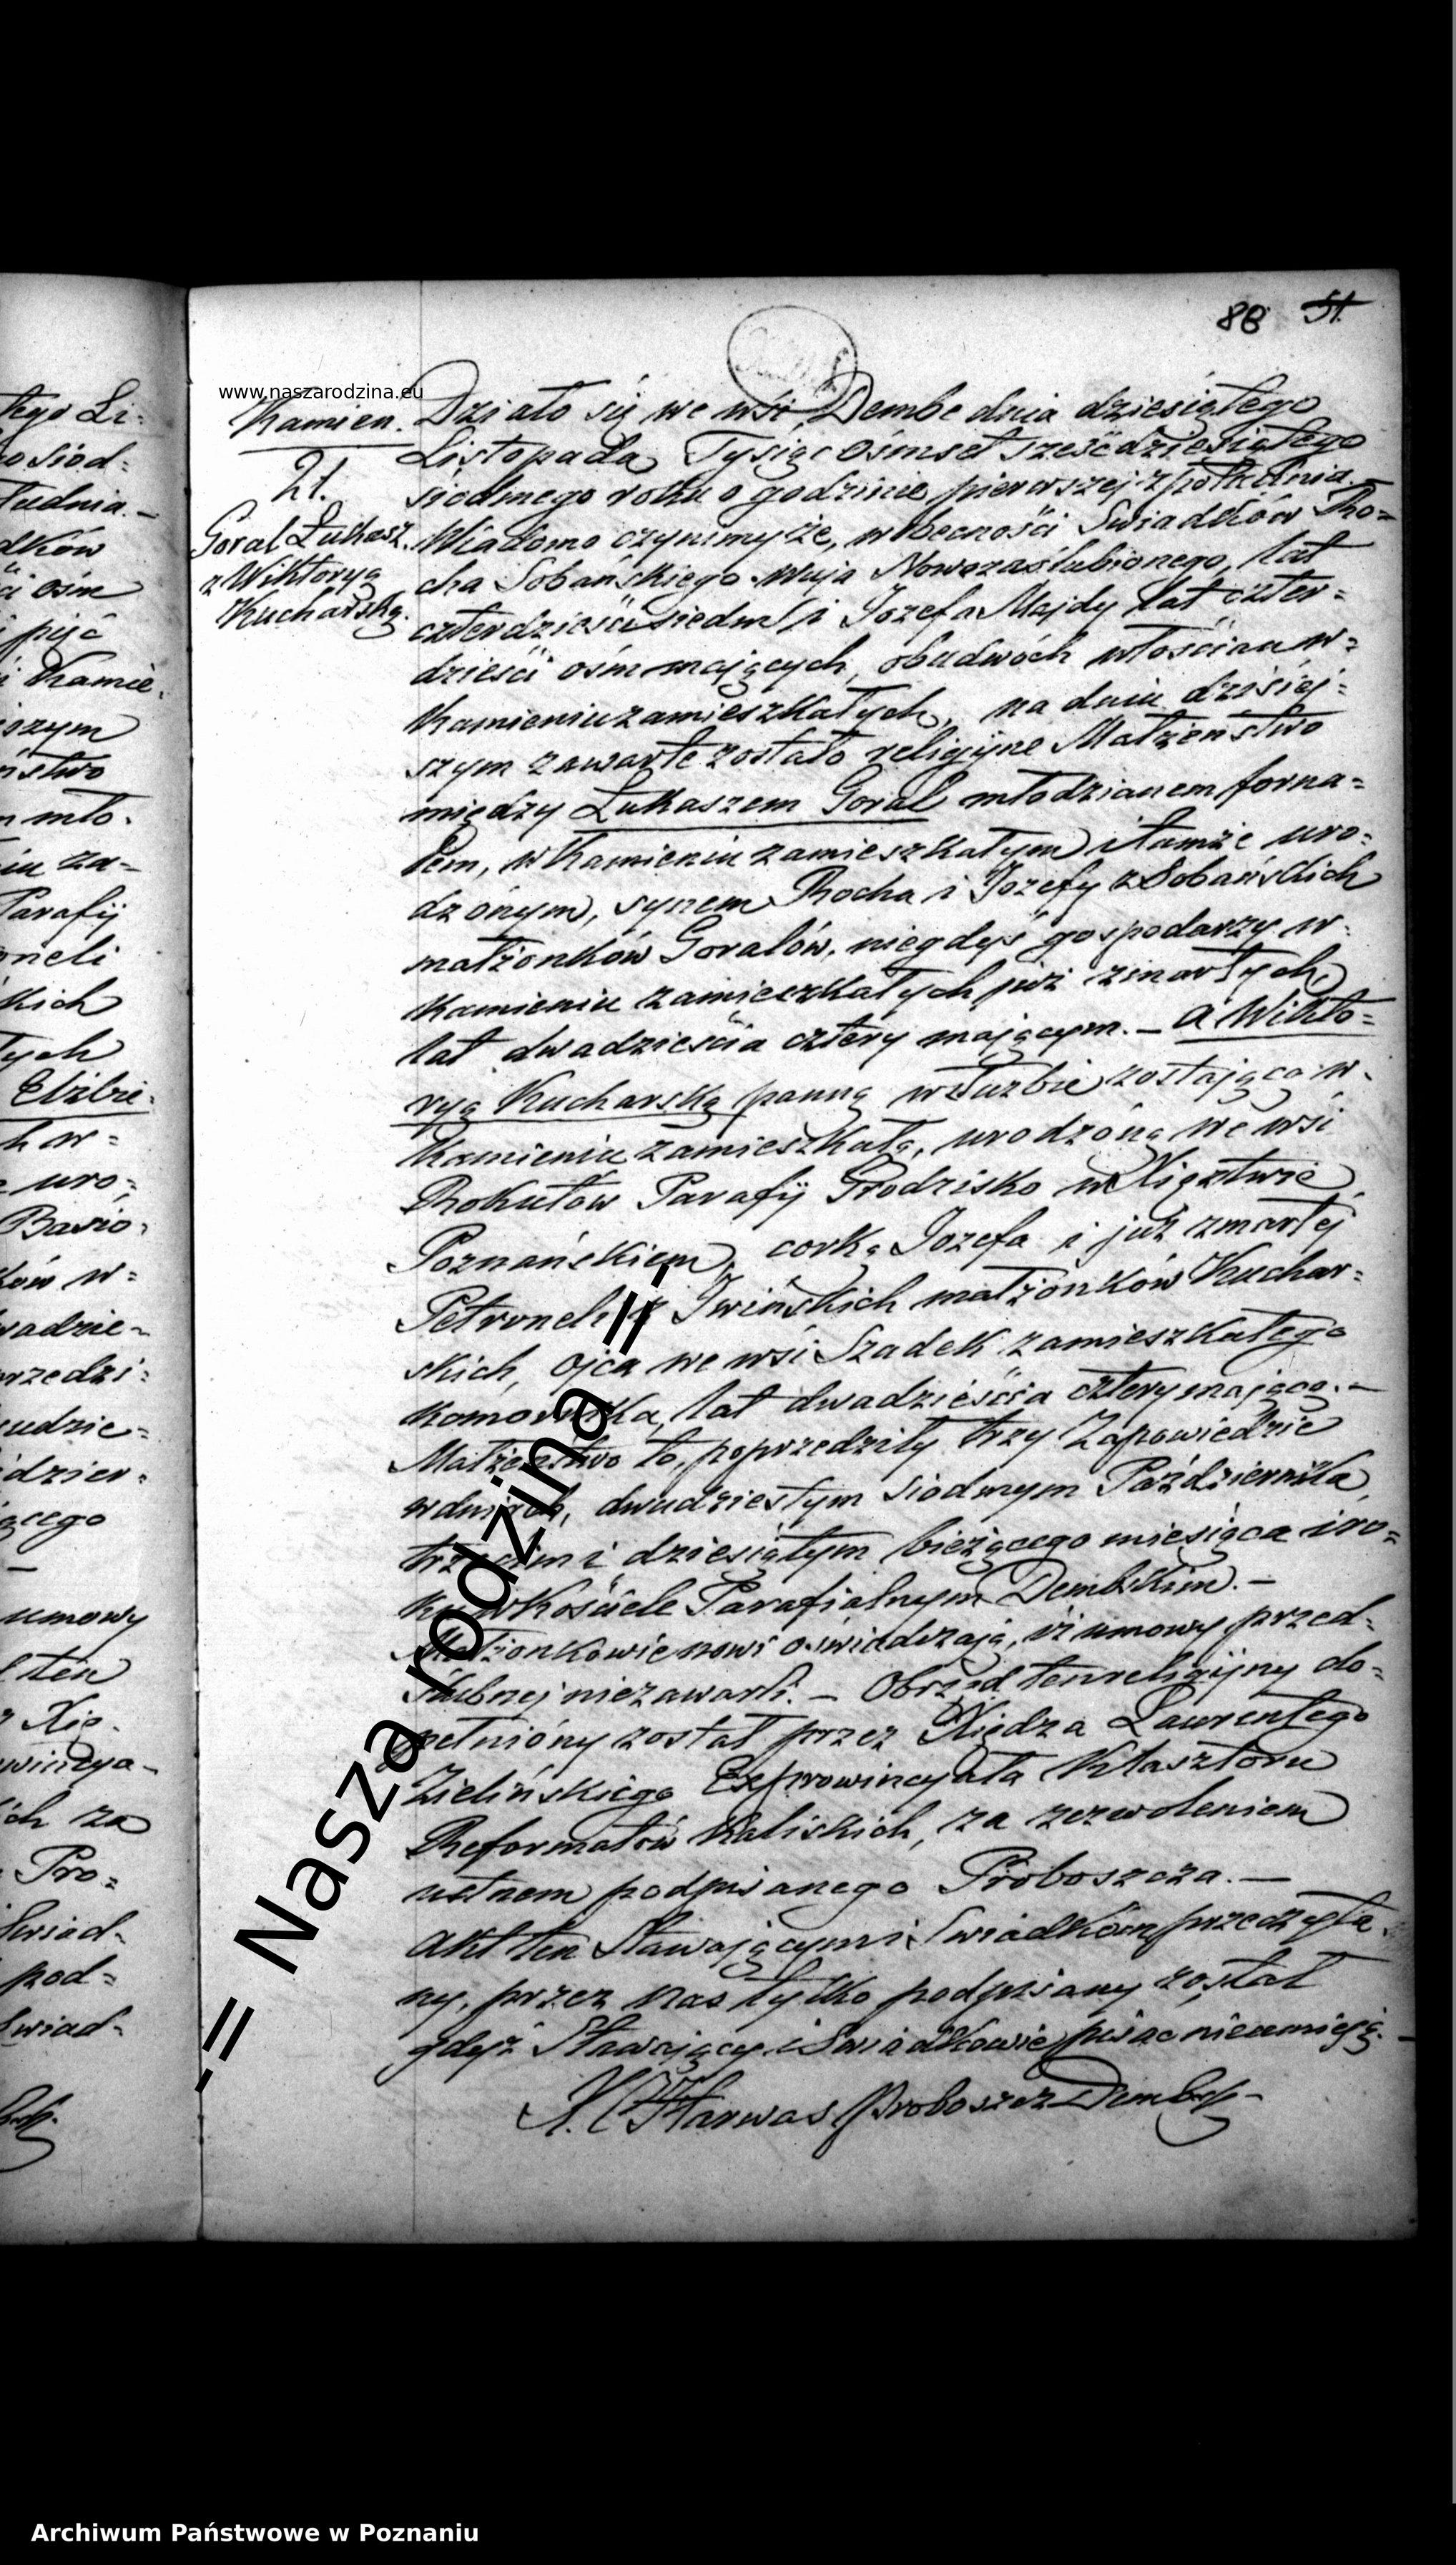 88 51.
www.naszarodzina.eu
Kamien.
21.
Goral Łukasz
z Wiktoryą
Kucharską.
Działo się we wsi Dembe dnia dziesiątego
Listopada Tysiąc Ośmset sześćdziesiątego
siódmego roku o godzinie pierwszej z południa.
Wiadomo czynimy że, w obecności Swiadków Ro=
cha Sobańskiego Wuja Nowozaślubionego, lat
czterdzieści siedm i Jozefa Majdy lat czter=
dzieści ośm mających, obudwóch włościan w=
Kamieniu zamieszkałych, na dniu dzisiej=
szym zawarte zostało religijne Małżeństwo
między Łukaszem Goral młodzianem forna=
lem, w Kamieniu zamieszkałym i tamże uro=
dzónym, synem Rocha i Jozefy z Sobańskich
małżonków Goralów, niegdyś gospodarzy w=
Kamieniu zamieszkałych już zmarłych,
lat dwadzieścia cztery mającym. — a Wikto=
ryą Kucharską panną w służbie zostającą w=
Kamieniu zamieszkałą, urodzóną we wsi
Rokutów Parafij Grodzisko w Xięztwie
Poznańskiem, corką Jozefa i już zmarłej
Petroneli z Iwińskich małżonków Kuchar=
skich, ojca we wsi Szadek zamieszkałego
komornika, lat dwadzieścia cztery mającą. —
Małżeństwo to, poprzedziły trzy Zapowiedzie
w dniach, dwudziestym siodmym Października,
trzecim i dziesiątym bieżącego miesiąca i ro=
ku w Kościele Parafialnym Dembskim. —
Małżonkowie nowi oświadczają, iż umowy przed=
ślubnej niezawarli. — Obrzęd ten religijny do=
pełnióny został przez Xiędza Laurentego
Zielińskiego Exprowincyała Klasztoru
Reformatów Kaliskich, za zezwoleniem
ustnem podpisanego Proboszcza. —
Akt ten Stawającym i Swiadkom przeczyta=
ny, przez nas tylko podpisany został
gdyż Stawający i Swiadkowie pisać nieumieją. —
X. Harwas Proboszcz Dembski
-= Nasza rodzina =-
Archiwum Państwowe w Poznaniu